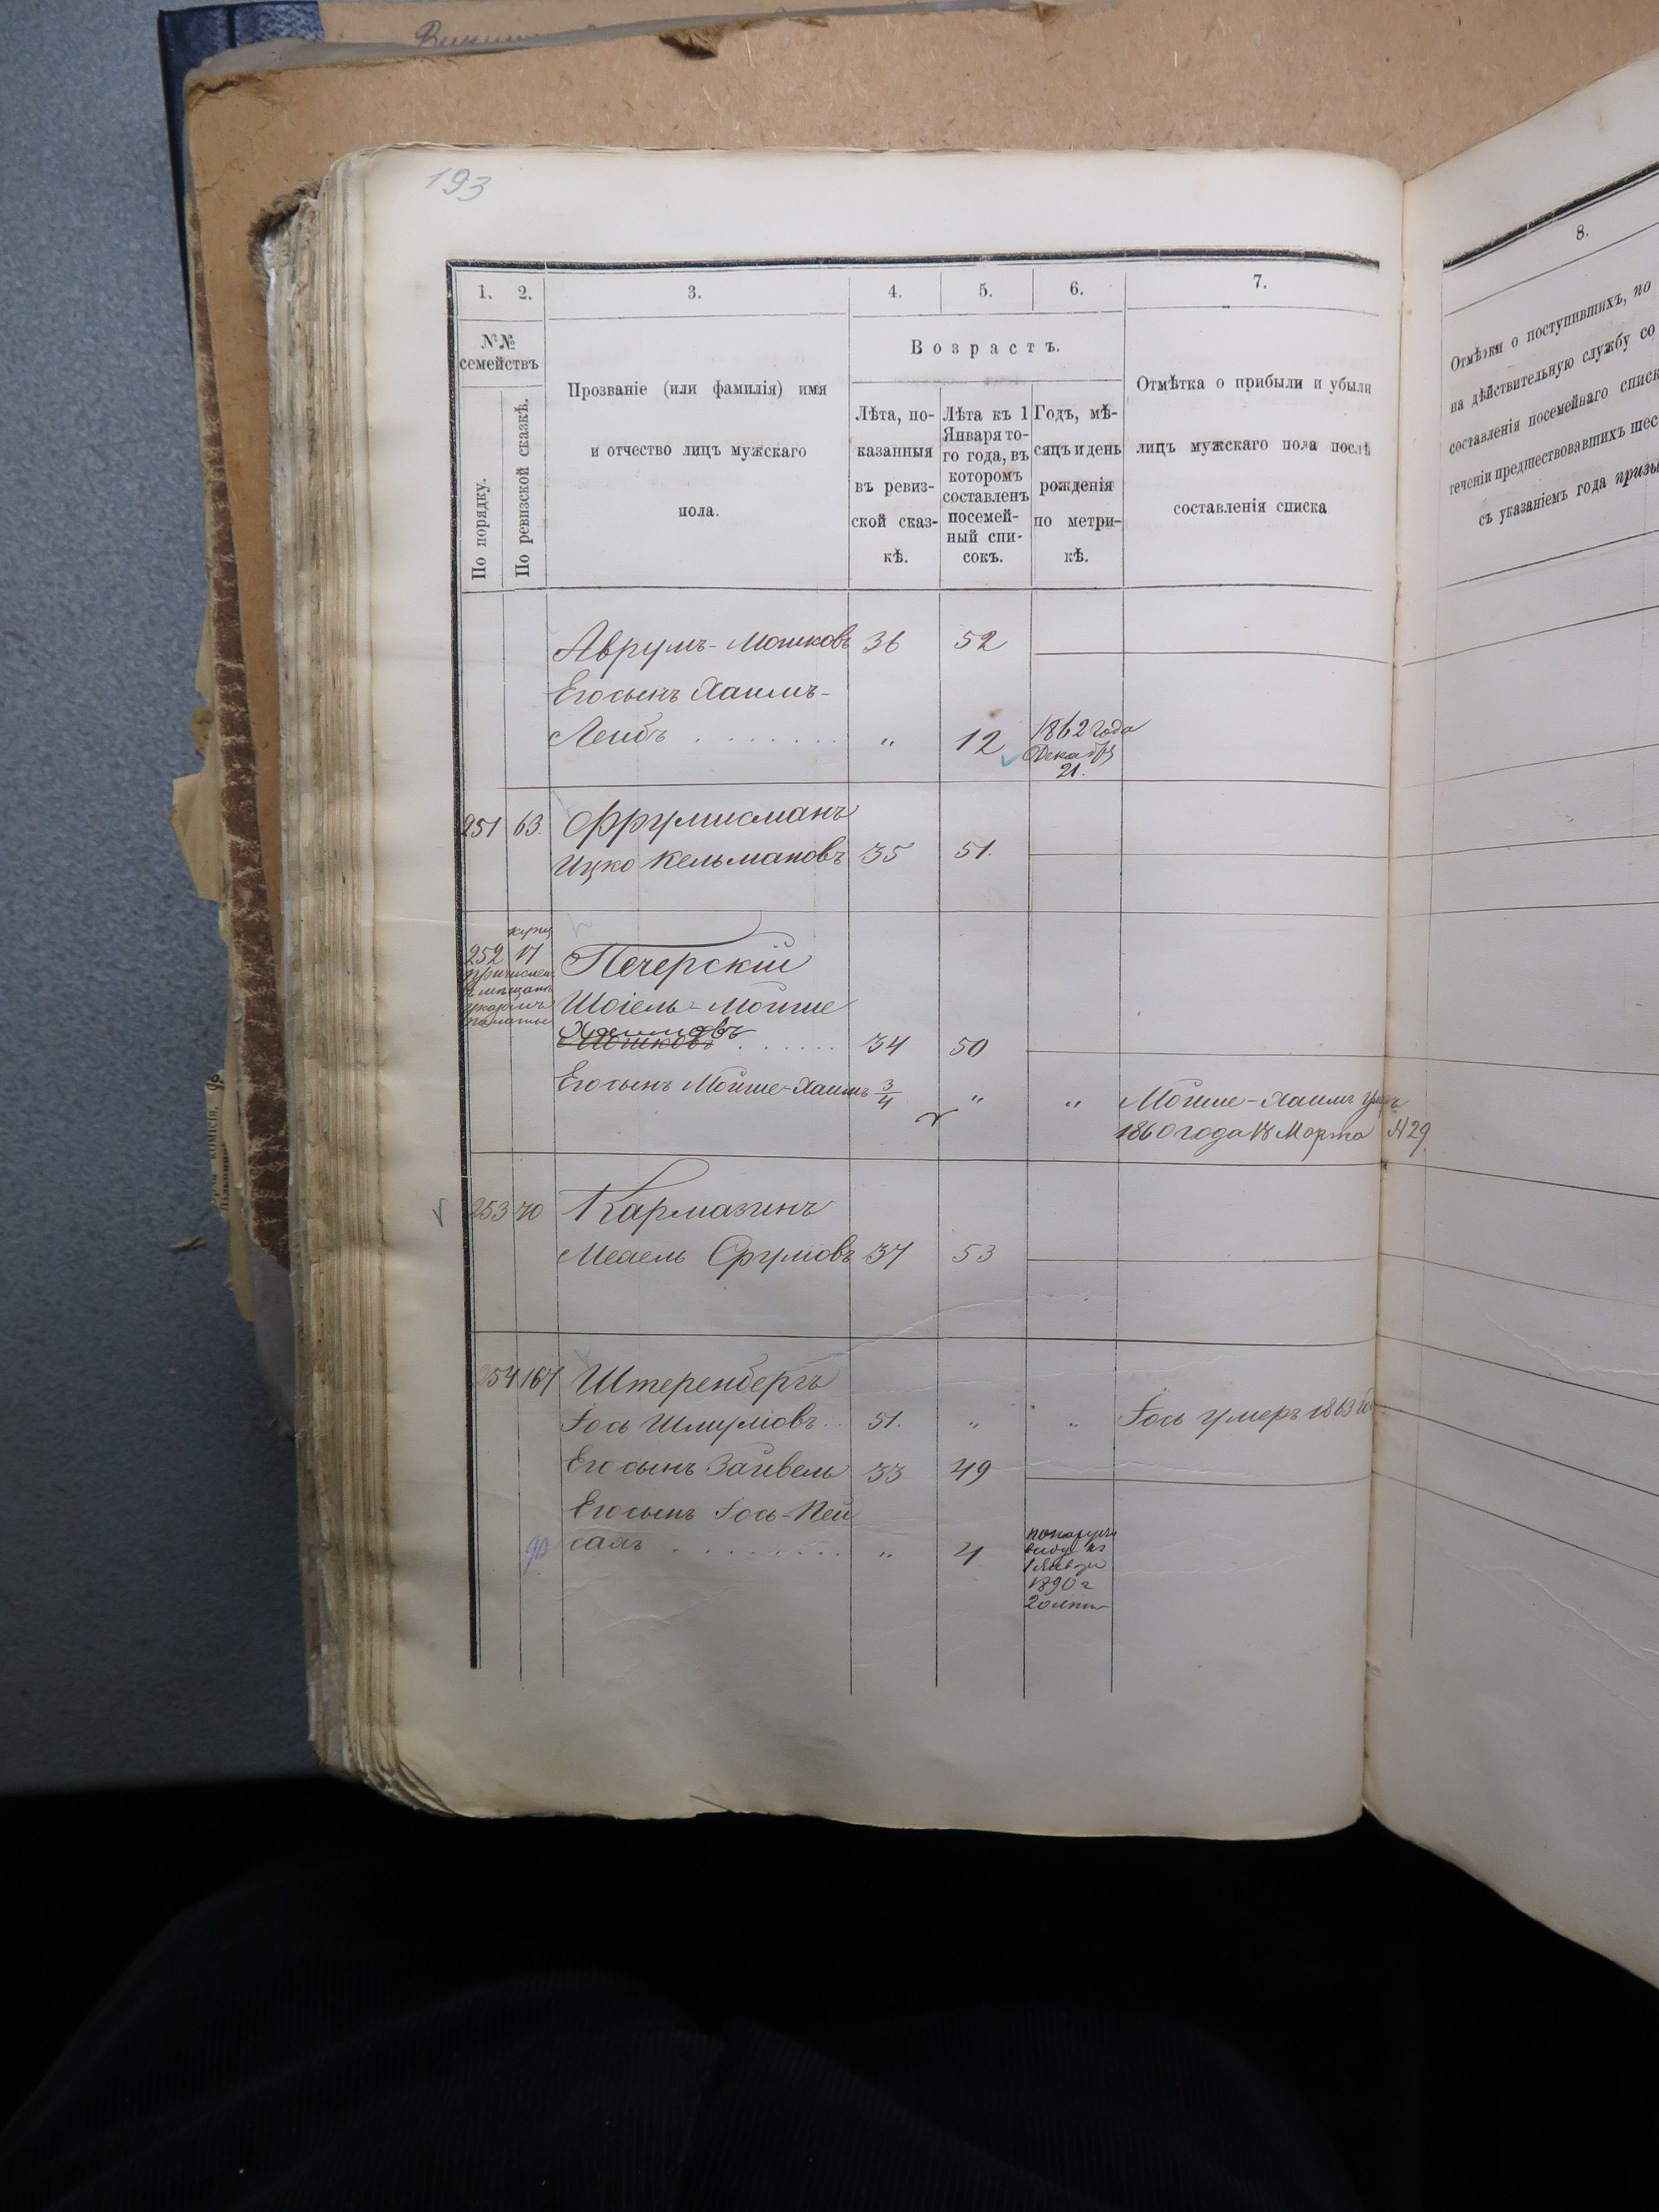 193
1. 2. 3. 4. 5. 6. 7.
№№ семействъ
По порядку.
По ревизской сказкѣ.
Прозваніе (или фамилія) имя
и отчество лицъ мужскаго
пола.
Возрастъ.
Лѣта, по-
казанныя
въ ревиз-
ской сказ-
кѣ.
Лѣта къ 1
Января то-
го года, въ
которомъ
составленъ
посемей-
ный спи-
сокъ.
Годъ, мѣ-
сяцъ и день
рожденія
по метри-
кѣ.
Отмѣтка о прибыли и убыли
лицъ мужскаго пола послѣ
составленія списка
8.
Отмѣтки о поступившихъ, по
на дѣйствительную службу со
составленія посемейнаго списк
теченіи предшествовавшихъ шес
съ указаніемъ года призы
Аврумъ-Мошковъ 36 52
Его сынъ Хаимъ-
Лейбъ . . . . . . . " 12 1862 года
Декабря
21.
251 63. Фрумисманъ
Ицко Кельмановъ 35 51.
252 17 Печерскій
причислен
Шоіель-Мойше
Хаимовъ
Мошковъ . . . . . . 34 50
Его сынъ Мойше-Хаимъ 3/4 " " Мойше-Хаимъ умеръ
1860 года 18 Марта № 29.
253 70 Кармазинъ
Мехель Срумовъ 37 53
254 167 Штеренбергъ
Іось Шмулiовъ . . 51. " " Іось умеръ 1863 го
Его сынъ Зайвель 33 49
Его сынъ Іось-Пей
90 сахъ . . . . . . . . . " 4 по наруж
виду къ
1 Января
1890 г
20 лѣтъ